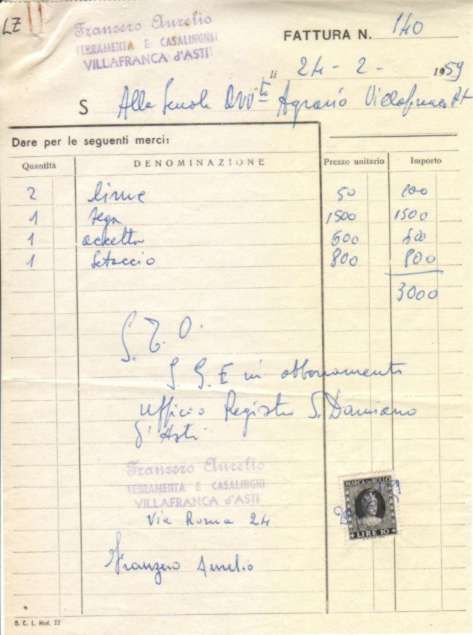 LZ
Franzero Aurelio
FERRAMENTA E CASALINGHI
VILLAFRANCA d'ASTI
FATTURA N. 140
li 24 - 2 - 1959
S Alla Scuola Avv.to Agrario Villafranca At
Dare per le seguenti merci:
Quantità DENOMINAZIONE Prezzo unitario Importo
2 lime 50 100
1 sega 1500 1500
1 accetta 600 600
1 setaccio 800 800
3000
I G E in abbonamento
Ufficio Registro S. Damiano
d'Asti
Franzero Aurelio
FERRAMENTA E CASALINGHI
VILLAFRANCA d'ASTI
Via Roma 24
Franzero Aurelio
MARCA DA BOLLO
LIRE 10
B. C. I. Mod. 22